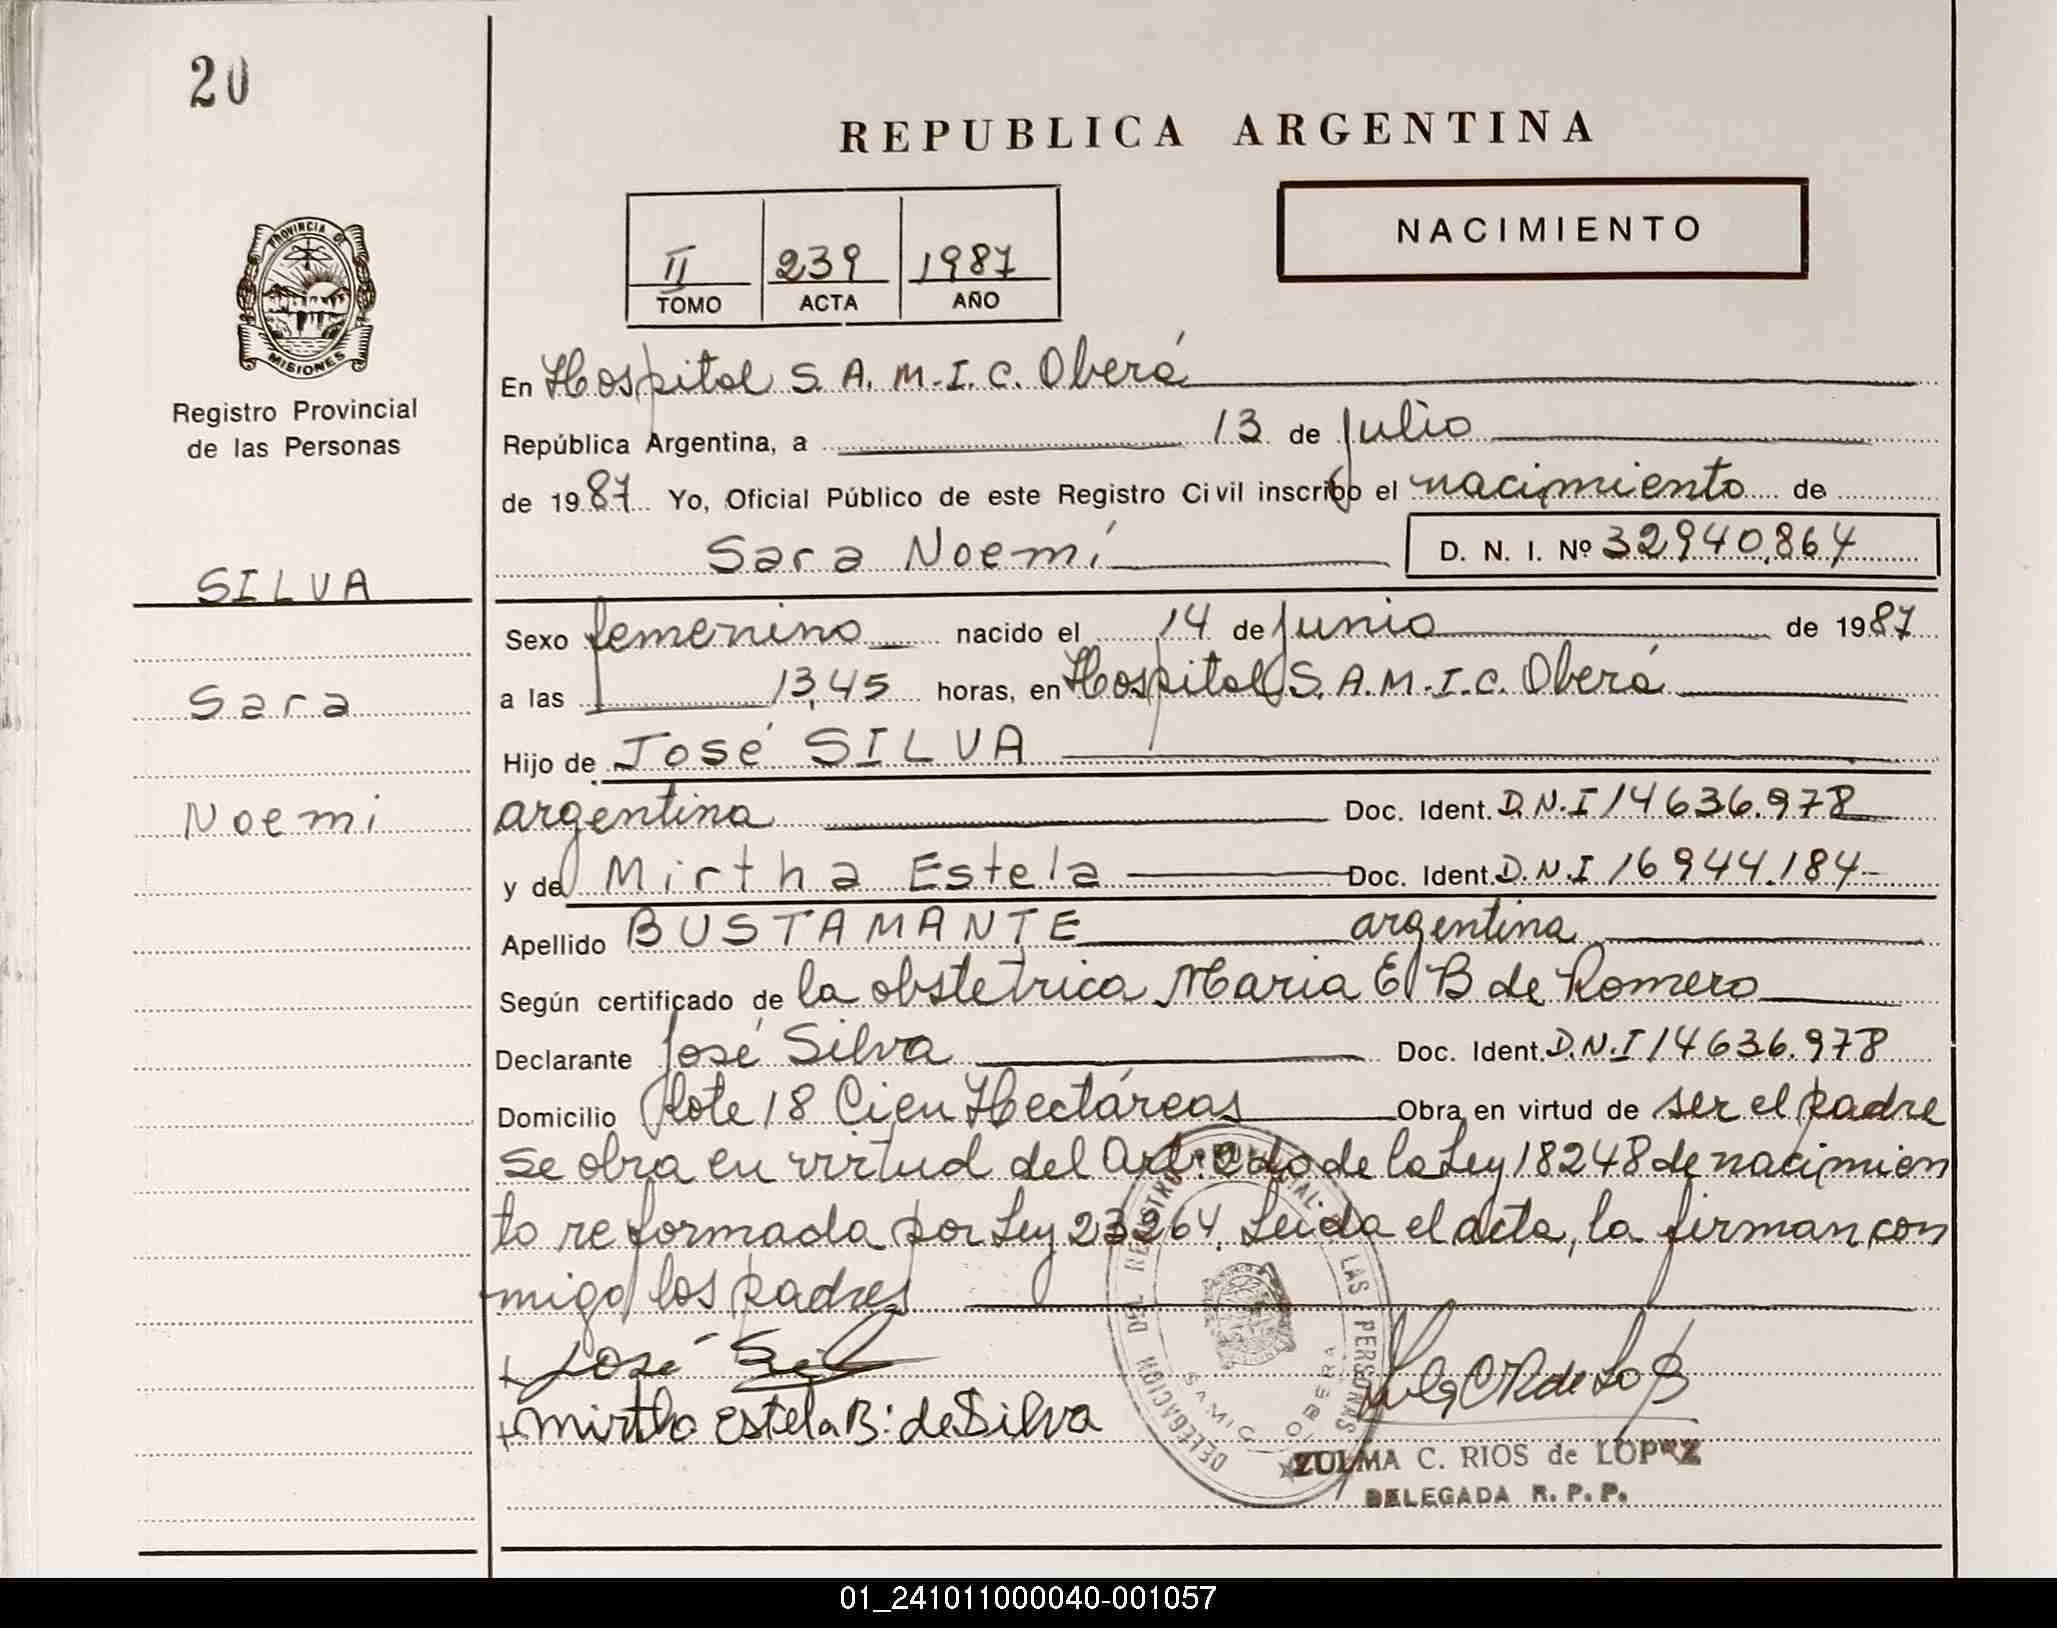 20
REPUBLICA ARGENTINA
II 239 1987
TOMO ACTA AÑO
NACIMIENTO
PROVINCIA DE
MISIONES
Registro Provincial
de las Personas
SILVA
Sara
Noemi
En Hospital S.A.M.I.C. Oberá
República Argentina, a 13 de julio
de 1987 Yo, Oficial Público de este Registro Civil inscribo el nacimiento de
Sara Noemí D. N. I. Nº 32940.864
Sexo femenino nacido el 14 de junio de 1987
a las 13,45 horas, en Hospital S.A.M.I.C. Oberá
Hijo de José SILVA
argentina Doc. Ident. D.N.I 14636.978
y de Mirtha Estela Doc. Ident. D.N.I 16944.184
Apellido BUSTAMANTE argentina
Según certificado de la obstetrica Maria E B de Romero
Declarante José Silva Doc. Ident. D.N.I 14636.978
Domicilio Lote 18 Cien Hectáreas Obra en virtud de ser el padre
se obra en virtud del Art. 2do de la Ley 18248 de nacimien
to reformada por Ley 23264. Leida el acta, la firman con
migo los padres
José Sil
Mirtha Estela B. de Silva
DELEGACION DEL REGISTRO PROVINCIAL DE LAS PERSONAS
SAMIC OBERA
ZULMA C. RIOS de LOPEZ
DELEGADA R. P. P.
01_241011000040-001057